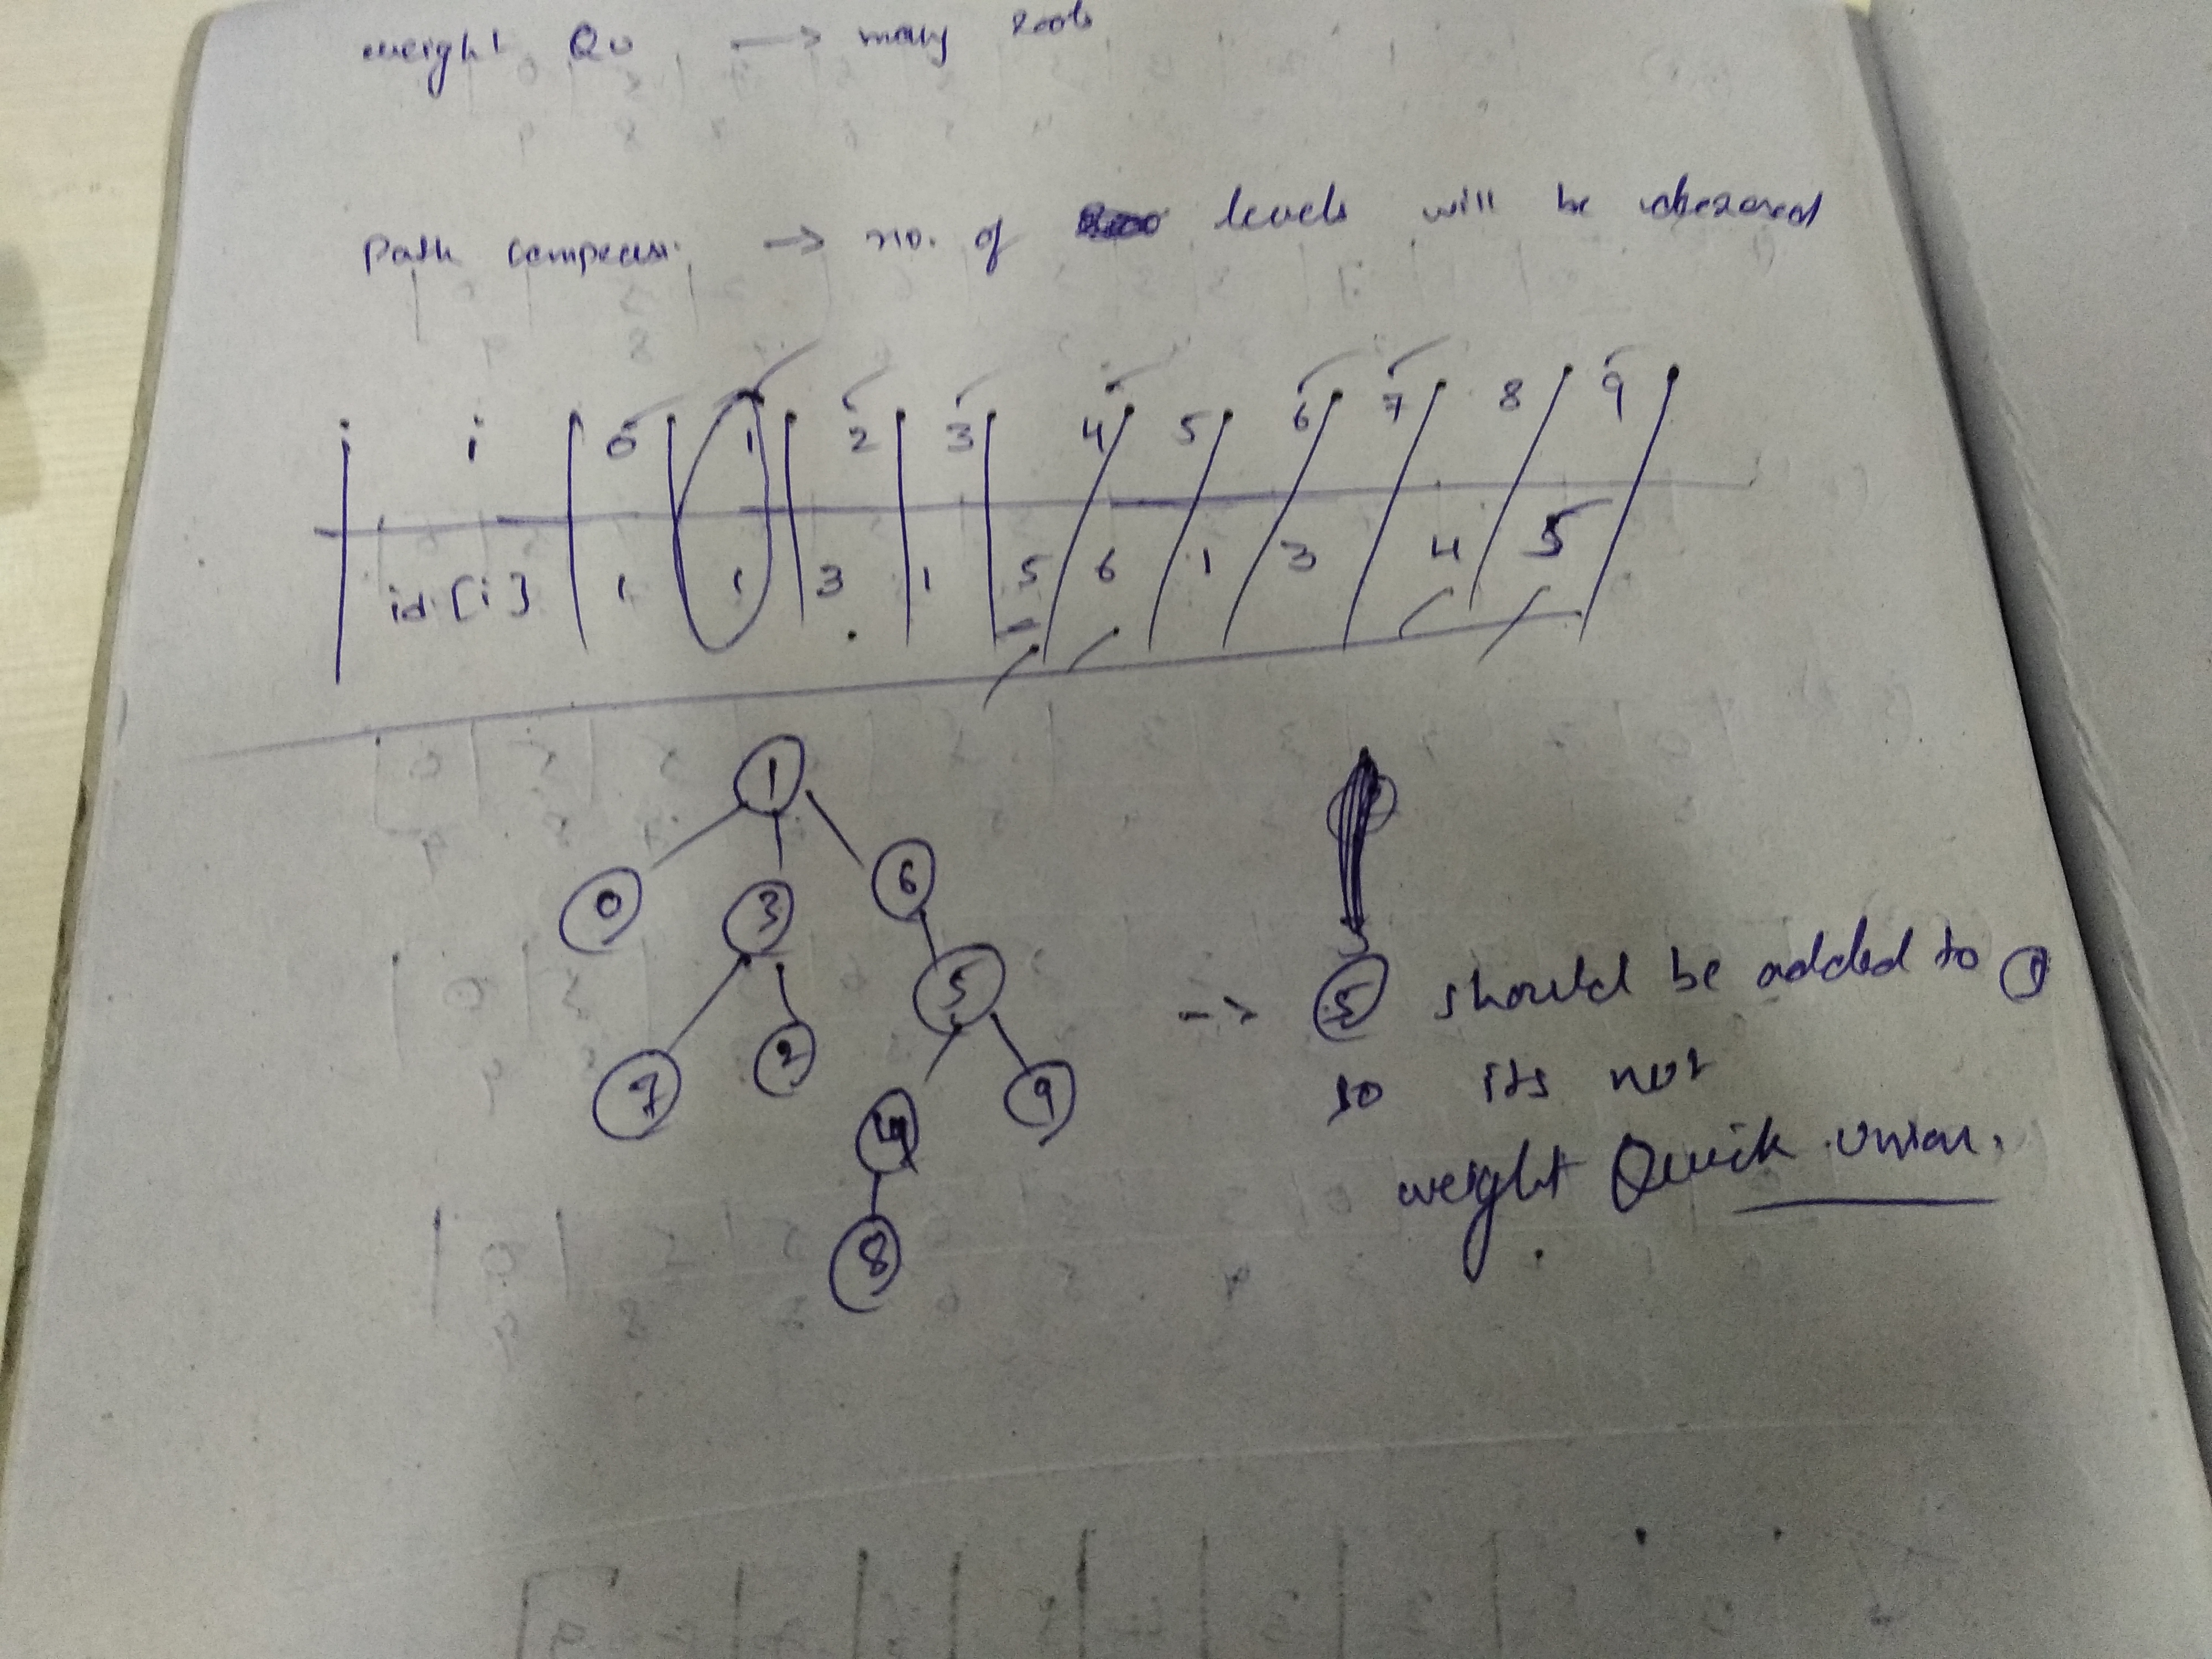 weight QU → many roots
Path Compressi. → no. of levels will be
i 0 1 2 3 4 5 6 7 8 9
id[i] 1 1 3 1 5 6 1 3 4 5
1
0 3 6
7 2 5
4 9
8
→ 5 should be added to 1
so its not
weight Quick Union.